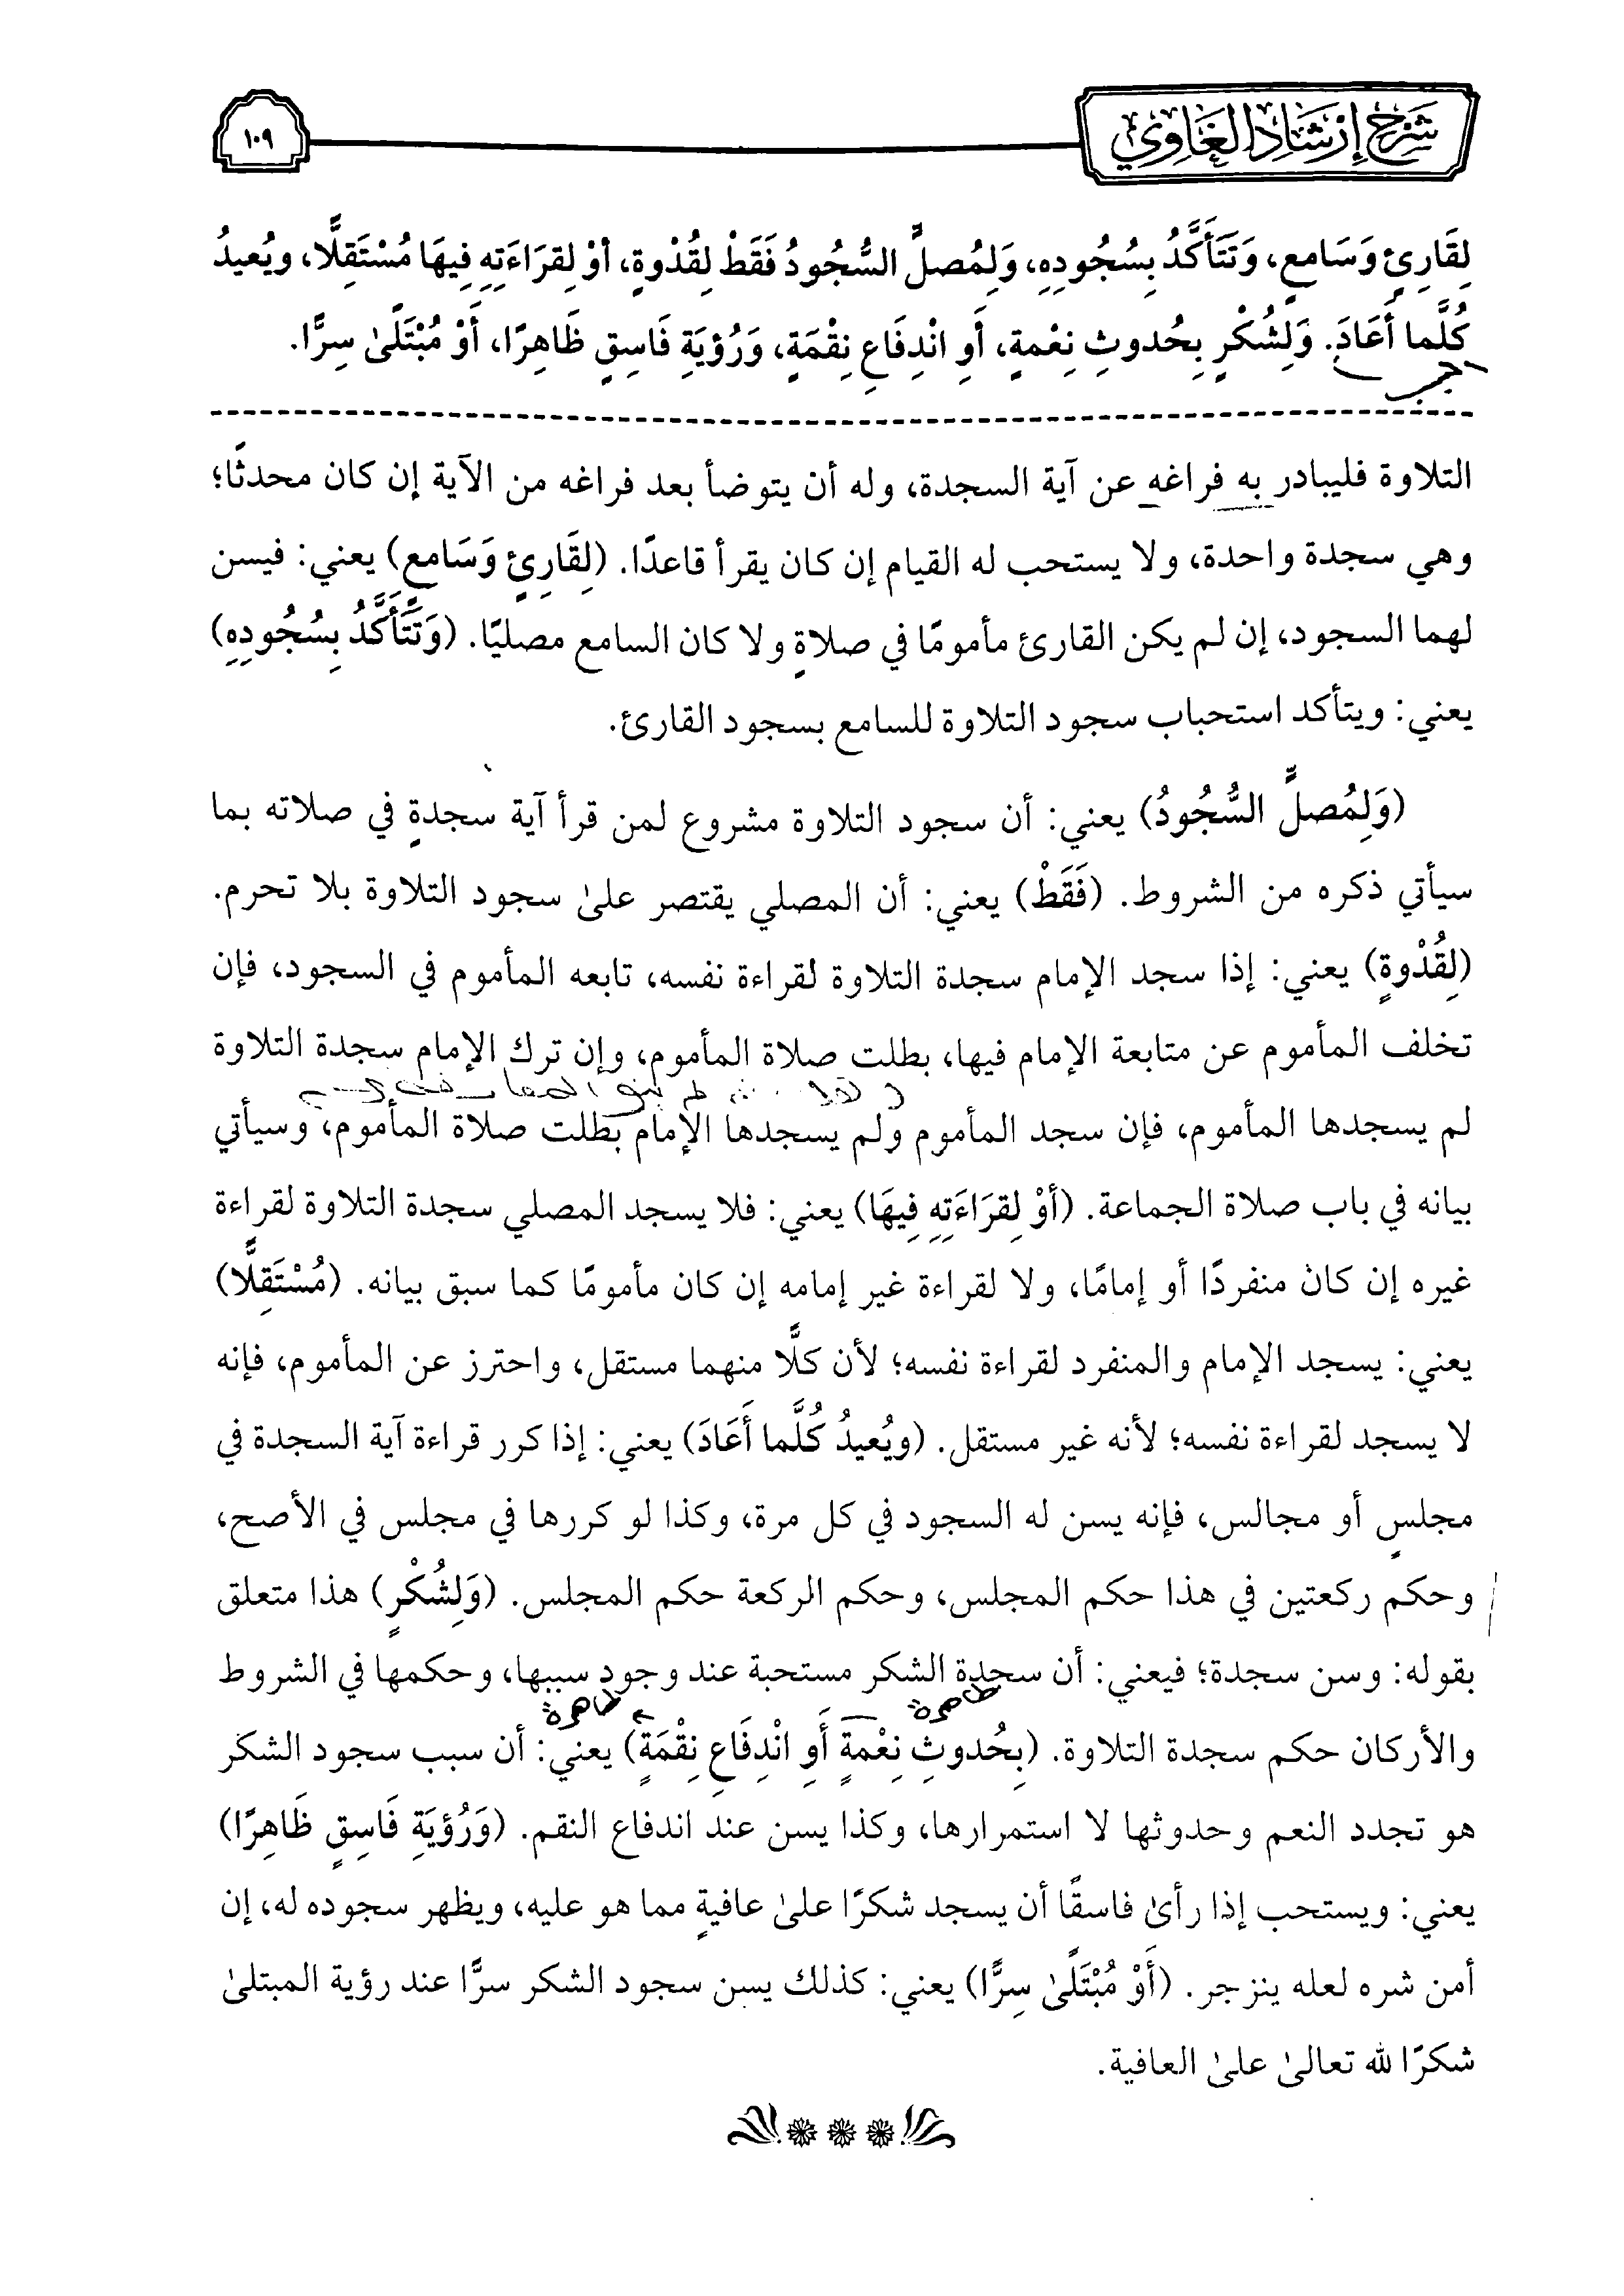 شرح إرشاد الغاوي
١٠٩
لِقَارِئٍ وَسَامِعٍ، وَتَتَأَكَّدُ بِسُجُودِهِ، وَلِمُصلٍّ السُّجُودُ فَقَطْ لِقُدْوةٍ، أوْ لِقرَاءَتِهِ فِيهَا مُسْتَقِلًّا، ويُعيدُ
كُلَّما أَعَادَ. وَلِشُكْرٍ بِحُدوثِ نِعْمةٍ، أَوِ انْدِفَاعِ نِقْمَةٍ، وَرُؤيَةِ فَاسِقٍ ظَاهِرًا، أَوْ مُبْتَلًىٰ سِرًّا.
التلاوة فليبادر به فراغه عن آية السجدة، وله أن يتوضأ بعد فراغه من الآية إن كان محدثًا؛
وهي سجدة واحدة، ولا يستحب له القيام إن كان يقرأ قاعدًا. (لِقَارِئٍ وَسَامعٍ) يعني: فيسن
لهما السجود، إن لم يكن القارئ مأمومًا في صلاةٍ ولا كان السامع مصليًا. (وَتَتَأَكَّدُ بِسُجُودِهِ)
يعني: ويتأكد استحباب سجود التلاوة للسامع بسجود القارئ.
(وَلِمُصلٍّ السُّجُودُ) يعني: أن سجود التلاوة مشروع لمن قرأ آية سجدةٍ في صلاته بما
سيأتي ذكره من الشروط. (فَقَطْ) يعني: أن المصلي يقتصر علىٰ سجود التلاوة بلا تحرم.
(لِقُدْوةٍ) يعني: إذا سجد الإمام سجدة التلاوة لقراءة نفسه، تابعه المأموم في السجود، فإن
تخلف المأموم عن متابعة الإمام فيها، بطلت صلاة المأموم، وإن ترك الإمام سجدة التلاوة
لم يسجدها المأموم، فإن سجد المأموم ولم يسجدها الإمام بطلت صلاة المأموم، وسيأتي
بيانه في باب صلاة الجماعة. (أوْ لِقرَاءَتِهِ فِيهَا) يعني: فلا يسجد المصلي سجدة التلاوة لقراءة
غيره إن كان منفردًا أو إمامًا، ولا لقراءة غير إمامه إن كان مأمومًا كما سبق بيانه. (مُسْتَقِلًّا)
يعني: يسجد الإمام والمنفرد لقراءة نفسه؛ لأن كلًّا منهما مستقل، واحترز عن المأموم، فإنه
لا يسجد لقراءة نفسه؛ لأنه غير مستقل. (ويُعيدُ كُلَّما أَعَادَ) يعني: إذا كرر قراءة آية السجدة في
مجلسٍ أو مجالس، فإنه يسن له السجود في كل مرة، وكذا لو كررها في مجلس في الأصح،
وحكم ركعتين في هذا حكم المجلس، وحكم الركعة حكم المجلس. (وَلِشُكْرٍ) هذا متعلق
بقوله: وسن سجدة؛ فيعني: أن سجدة الشكر مستحبة عند وجود سببها، وحكمها في الشروط
ظاهرة
ظاهرة
والأركان حكم سجدة التلاوة. (بِحُدوثِ نِعْمةٍ أَوِ انْدِفَاعِ نِقْمَةٍ) يعني: أن سبب سجود الشكر
هو تجدد النعم وحدوثها لا استمرارها، وكذا يسن عند اندفاع النقم. (وَرُؤيَةِ فَاسِقٍ ظَاهِرًا)
يعني: ويستحب إذا رأىٰ فاسقًا أن يسجد شكرًا علىٰ عافيةٍ مما هو عليه، ويظهر سجوده له، إن
أمن شره لعله ينزجر. (أَوْ مُبْتَلًىٰ سِرًّا) يعني: كذلك يسن سجود الشكر سرًّا عند رؤية المبتلىٰ
شكرًا لله تعالىٰ علىٰ العافية.